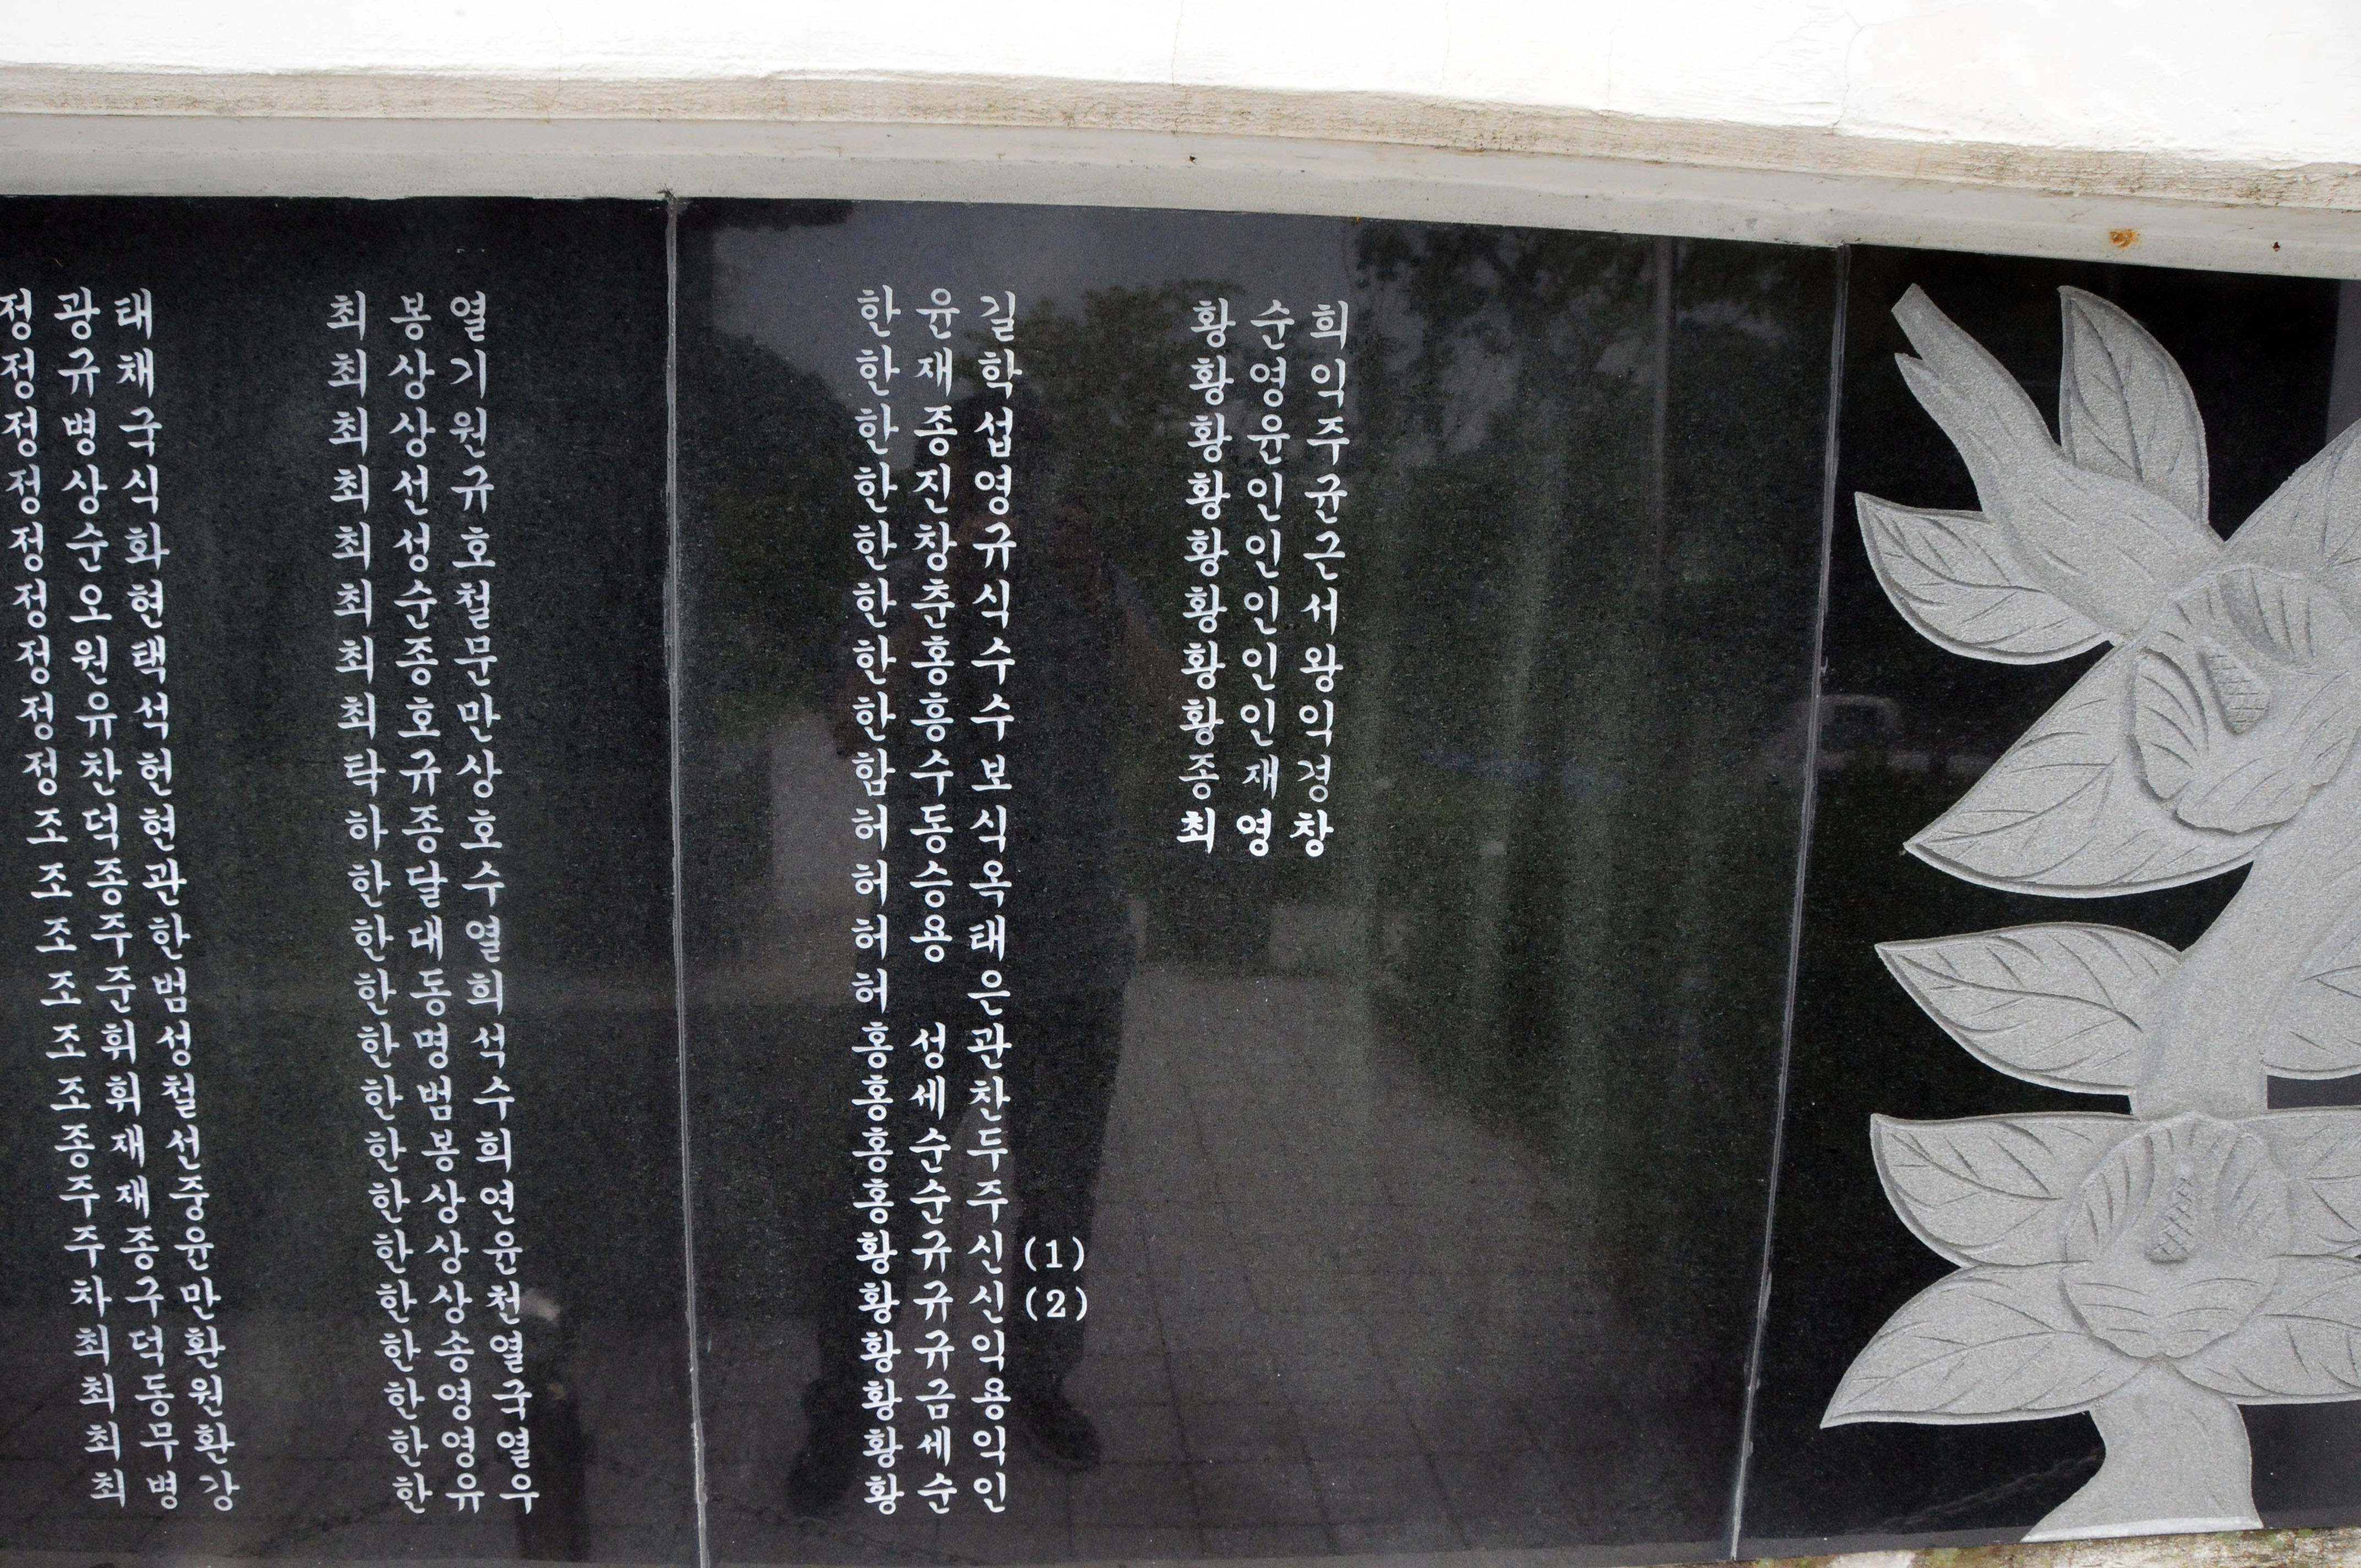 정광태
정규채
정병국
정상식
정순화
정오현
정원택
정유석
정찬헌
조덕현
조종관
조주한
조준범
조휘성
조휘철
종재선
주재중
주종윤
차구만
최덕환
최동원
최무환
최병강
최봉열
최상기
최상원
최선규
최성호
최순철
최종문
최호만
탁규상
하종호
한달수
한대열
한동희
한명석
한범수
한봉희
한상연
한상윤
한상천
한송열
한영국
한영열
한유우
한윤길
한재학
한종섭
한진영
한창규
한춘식
한홍수
한흥수
함수보
허동식
허승옥
허용태
허 은
홍성관
홍세찬
홍순두
홍순주
황규신(1)
황규신(2)
황규익
황금용
황세익
황순인
황순희
황영익
황윤주
황인균
황인근
황인서
황인왕
황인익
종재경
최영창